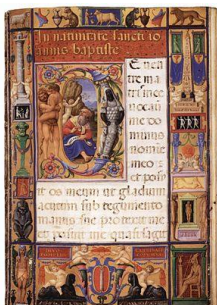 In nativitate sancti io
annis baptiste
E ven
tre ma
tris mee
vocavit
me do
minus
nomie
meo: -
et posu
it os meum ut gladium
acutum sub tegumento
manus sue protexit me
et posuit me quasi sagit